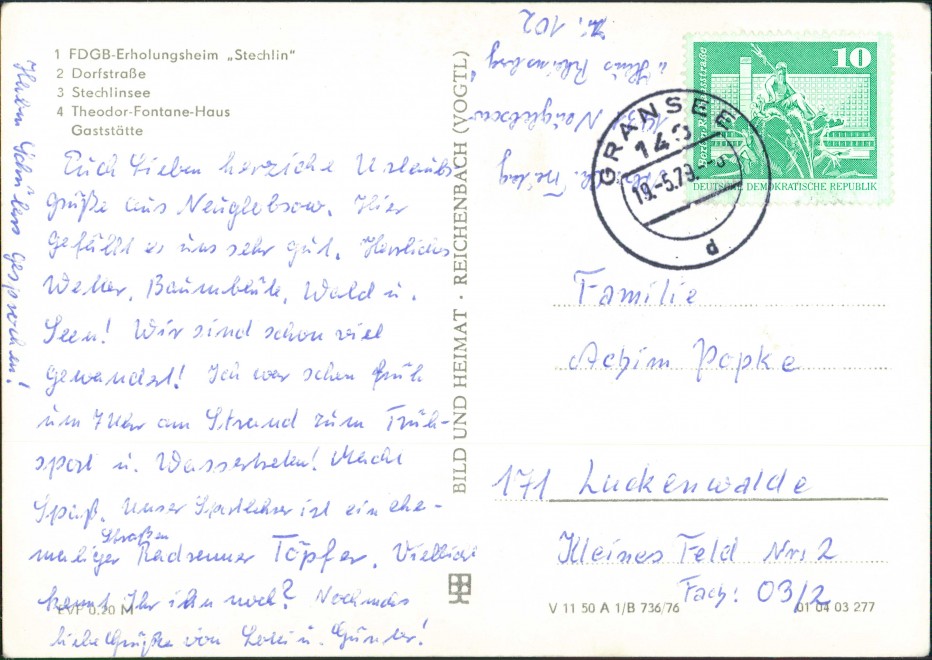 1 FDGB-Erholungsheim „Stechlin"
2 Dorfstraße
3 Stechlinsee
4 Theodor-Fontane-Haus
Gaststätte
Euch Lieben herzliche Urlaubs
grüße aus Neuglobsow. Hier
gefällt es uns sehr gut. Herrliches
Wetter, Baumblüte, Wald u.
Seen! Wir sind schon viel
gewandert! Ich war schon früh
um 7 Uhr am Strand zum Früh-
sport u. Wassertreten! Macht
Spaß. Unser Sportlehrer ist ein ehe-
maliger Straßen Radrenner Töpfer. Vielleicht
kennt Ihr ihn noch? Nochmals
liebe Grüße von u. Günter!
EVP 0.20 M
Haben gesprochen!
BILD UND HEIMAT · REICHENBACH (VOGTL)
Freitag
1431 Neuglobsow
„Haus Rheinsberg"
Zi. 102
10
Berlin-Rathausstraße
DEUTSCHE DEMOKRATISCHE REPUBLIK
GRANSEE
143
19.-5.79
d
Familie
Achim Popke
171 Luckenwalde
Kleines Feld Nr. 2
Fach: 03/2
V 11 50 A 1/B 736/76
01 04 03 277